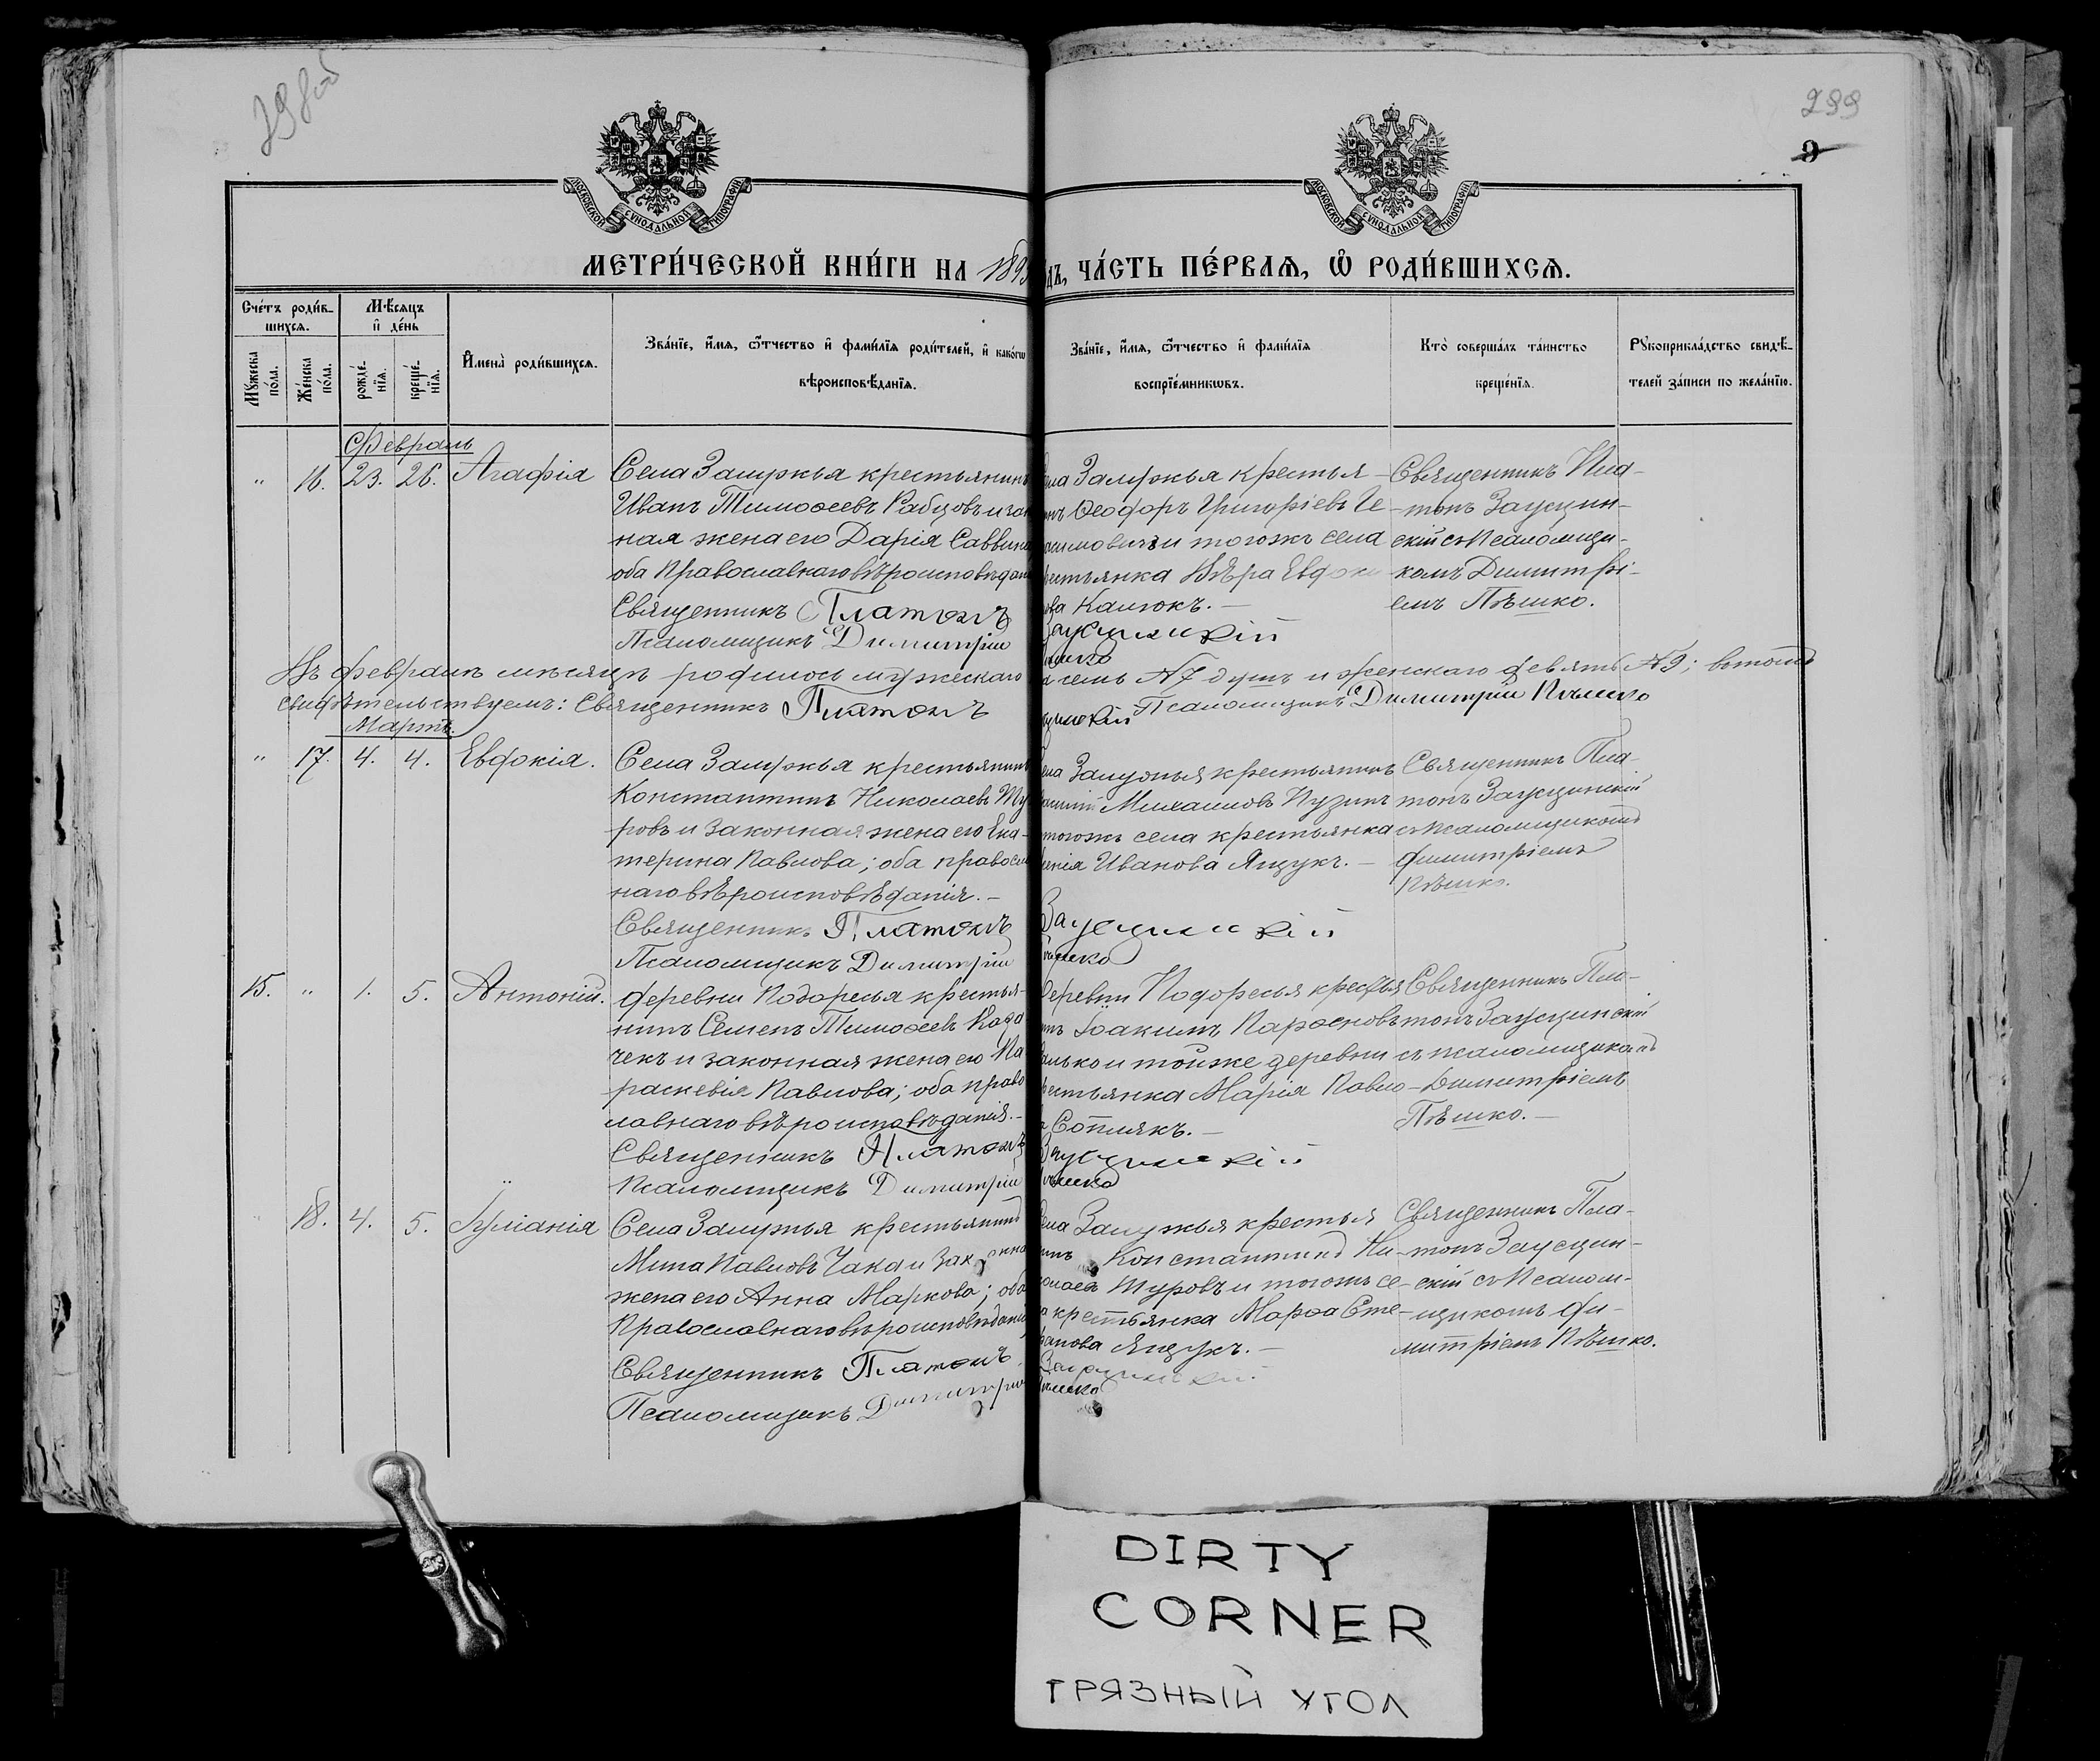 298об
299
9
МОСКОВСКОЙ СУНОДАЛЬНОЙ ТИПОГРАФІИ
МОСКОВСКОЙ СУНОДАЛЬНОЙ ТИПОГРАФІИ
МЕТРИ́ЧЕСКОЙ КНИ́ГИ НА 189 дъ, ЧА́СТЬ ПЕ́РВАЯ, Ѡ РОДИ́ВШИХСЯ.
Сче́тъ роди́в-
шихся.
Мꙋ́жеска по́ла.
Же́нска по́ла.
Мѣ́сяцъ
и҆ де́нь
рожде́-
нїя.
креще́-
нїя.
И҆мена̀ роди́вшихся.
Зва́нїе, и҆́мя, ѻ҆́тчество и҆ фами́лїя роди́телей, и҆ како́гѡ
вѣроисповѣ́данїя.
Зва́нїе, и҆́мя, ѻ҆́тчество и҆ фами́лїя
воспрїе́мникѡвъ.
Кто̀ соверша́лъ та́инство
креще́нїя.
Рꙋкоприкла́дство свидѣ́-
телей за́писи по жела́нїю.
Февраль
" 16. 23. 26. Агафія
Села Залужья крестьянинъ
Иванъ Тимоѳеевъ Рабцовъ и зак
ная жена его Дарія Саввина
оба Православнаго вѣроисповѣдан
Священникъ Платонъ
Псаломщикъ Димитрій
ела Залужья крестья-
нъ Ѳеодоръ Григорьевъ Ге-
расимовичъ и тогожъ села
рестьянка Вѣра Евдоки
ова Калюкъ.-
Заусцинскій
ѣшко
Священникъ Пла-
тонъ Заусцин-
скій съ Псаломщи-
комъ Димитрі-
емъ Пѣшко.
Въ февралѣ мѣсяцѣ родилось мужескаго а семь №7 душъ и женскаго девять №9; въ томъ
свидѣтельствуемъ: Священникъ Платонъ усцинскій Псаломщикъ Димитрій Пѣшко
Мартъ.
" 17. 4. 4. Евдокія.
Села Залужья крестьянинъ
Константинъ Николаевъ Ту
ровъ и законная жена его Ека-
терина Павлова; оба правосл
наго вѣроисповѣданія.-
Священникъ Платонъ
Псаломщикъ Димитрій
ела Залужья крестьянинъ
Михаиловъ Пузикъ
тогожъ села крестьянка
сенія Иванова Ящукъ.-
Заусцинскій
ѣшко
Священникъ Пла-
тонъ Заусцинскій
съ псаломщикомъ
Димитріемъ
Пѣшко.
15. " 1. 5. Антоній.
деревни Подоресья крестья-
нинъ Семенъ Тимоѳеевъ Када
чекъ и законная жена его Па
раскевія Павлова; оба право
лавнаго вѣроисповѣданія.-
Священникъ Платонъ
Псаломщикъ Димитрій
деревни Подоресья крестья
нъ Іоакимъ Парѳеновъ
алько и тойже деревни
рестьянка Марія Павло-
а Сопилякъ.-
Заусцинскій
ѣшко
Священникъ Пла-
тонъ Заусцинскій
съ псаломщикомъ
Димитріемъ
Пѣшко.-
" 18. 4. 5. Іуліанія
Села Залужья крестьянинъ
Мина Павловъ Чака и законна
жена его Анна Маркова; оба
Православнаго вѣроисповѣданія
Священникъ Платонъ
Псаломщикъ Димитрій
ела Залужья крестья
инъ Константинъ Ни-
олаевъ Туровъ и тогожъ се-
а крестьянка Марѳа Сте-
фанова Ящукъ.-
Заусцинскій
ѣшко
Священникъ Пла-
тонъ Заусцин-
скій съ Псалом-
щикомъ Ди-
митріемъ Пѣшко.
DIRTY
CORNER
ГРЯЗНЫЙ УГОЛ